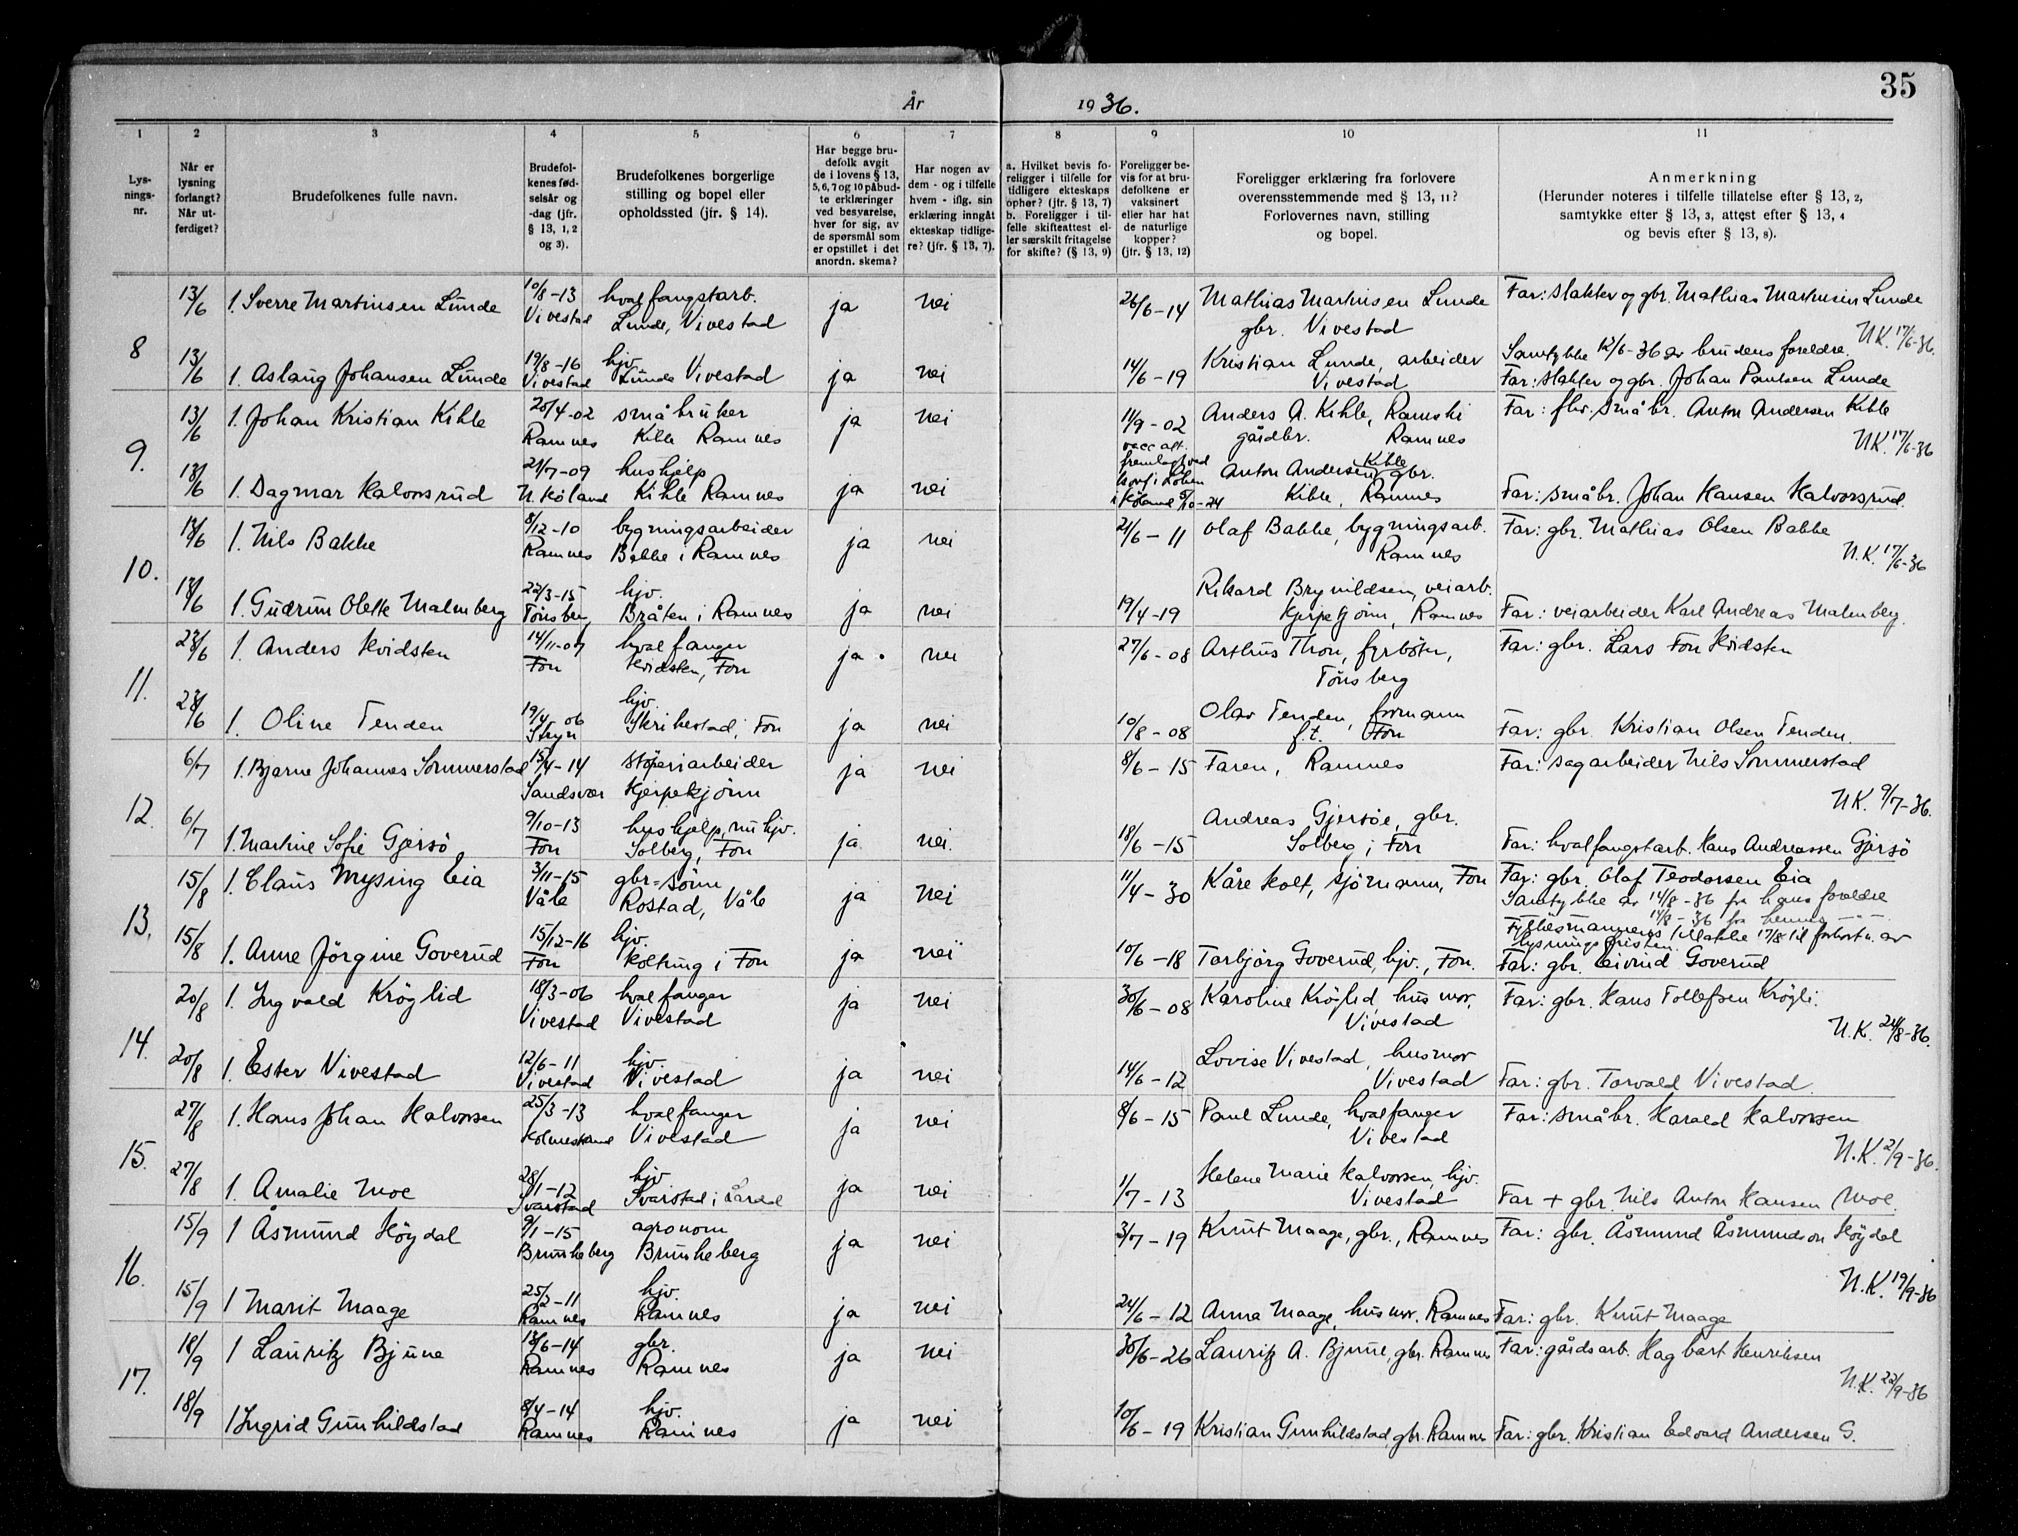 35
År 1936.
1 2 3 4 5 6 7 8 9 10 11
Lys-
nings-
nr.
Når er
lysning
forlangt?
Når ut-
ferdiget?
Brudefolkenes fulle navn.
Brudefol-
kenes fød-
selsår og
-dag (jfr.
§ 13, 1, 2
og 3).
Brudefolkenes borgerlige
stilling og bopel eller
opholdssted (jfr. § 14).
Har begge bru-
defolk avgit
de i lovens § 13,
5, 6, 7 og 10 påbud-
te erklæringer
ved besvarelse,
hver for sig, av
de spørsmål som
er opstillet i det
anordn. skema?
Har nogen av
dem - og i tilfelle
hvem - iflg. sin
erklæring inngått
ekteskap tidlige-
re? (jfr. § 13, 7).
a. Hvilket bevis fo-
religger i tilfelle for
tidligere ekteskaps
ophør? (jfr. § 13, 7)
b. Foreligger i til-
felle skifteattest el-
ler særskilt fritagelse
for skifte? (§ 13, 9)
Foreligger be-
vis for at bru-
defolkene er
vaksinert
eller har hat
de naturlige
kopper?
(jfr. § 13, 12)
Foreligger erklæring fra forlovere
overensstemmende med § 13, 11?
Forlovernes navn, stilling
og bopel.
Anmerkning
(Herunder noteres i tilfelle tillatelse efter § 13, 2,
samtykke efter § 13, 3, attest efter § 13, 4
og bevis efter § 13, 8).
8
13/6 1. Sverre Martinsen Lunde 10/8-13 hvalfangstarb. ja nei 26/6-14 Mathias Martinsen Lunde Far: slakter og gbr. Mathias Martinsen Lunde
Vivestad Lunde, Vivestad gbr. Vivestad N.K. 17/6-36.
13/6 1. Aslaug Johansen Lunde 19/8-16 hjv. ja nei 14/6-19 Kristian Lunde, arbeider Samtykke 12/6-36 av brudens foreldre.
Vivestad Lunde Vivestad Vivestad Far: slakter og gbr. Johan Paulsen Lunde
9.
13/6 1. Johan Kristian Kihle 20/4-02 småbruker ja nei 11/9-02 Anders A. Kihle, Ramnes Far: fhv. småbr. Anton Andersen Kihle
Ramnes Kihle Ramnes vacc. att. gårdbr. Ramnes N.K. 17/6-36
13/6 1. Dagmar Halvorsrud 21/7-09 hushjelp ja nei fremlagt ved Anton Andersen Kihle gbr.
Kihle Ramnes Kihle, Ramnes Far: småbr. Johan Hansen Halvorsrud.
10.
13/6 1. Nils Bakke 8/12-10 bygningsarbeider ja nei 21/6-11 Olaf Bakke, bygningsarb. Far: gbr. Mathias Olsen Bakke
Ramnes Bakke i Ramnes Ramnes N.K. 17/6-36
13/6 1. Gudrun Olette Malmberg 22/3-15 hjv. ja nei 19/4-19 Rikard Brynildsen, veiarb.
Tönsberg Bråten i Ramnes Kjerpekjönn, Ramnes Far: veiarbeider Karl Andreas Malmberg.
11.
23/6 1. Anders Hvidsten 14/11-07 hvalfanger ja. nei 27/6-08 Arthus Thon, fyrböter, Far: gbr. Lars Fon Hvidsten
Fon Hvidsten, Fon Tönsberg
23/6 1. Oline Tenden 19/4 06 hjv. ja nei 10/8-08 Olav Tenden, formann
Stryn Skrikestad, Fon f.t. Fon Far: gbr. Kristian Olsen Tenden.
12.
6/7 1. Bjarne Johannes Sommerstad 15/4-14 stöperiarbeider ja nei 8/6-15 Faren, Ramnes Far: sagarbeider Nils Sommerstad
Sandsvær Kjerpekjönn N.K. 9/7-36.
6/7 1. Martine Sofie Gjersö 9/10-13 hushjelp, nu hjv. ja nei. 18/6-15 Andreas Gjersöe, gbr.
Fon Solberg, Fon Solberg i Fon Far: hvalfangstarb. Hans Andreassen Gjersö
13.
15/8 1. Claus Mysing Eia 3/11-15 gbr-sönn ja nei 11/4-30 Kåre Holt, sjömann, Fon Far: gbr. Olaf Teodorsen Eia
Våle Rostad, Våle Samtykke av 14/8-36 fra hans foreldre
14/8-36 fra hennes -"-
15/8 1. Anne Jörgine Goverud 15/12-16 hjv. ja nei 10/6-18 Torbjörg Goverud, hjv., Fon. Fylkesmannens tillatelse 17/8 til forkort. av
lysningsfristen.
Fon Holtung i Fon Far: gbr. Eivind Goverud
14.
20/8 1. Ingvald Kröglid 18/3-06 hvalfanger ja nei 30/6-08 Karoline Kröglid, husmor, Far: gbr. Hans Tollefsen Krögli.
Vivestad Vivestad Vivestad N.K. 24/8-36.
20/8 1. Ester Vivestad 12/6-11 hjv. ja nei 14/6-12 Lovise Vivestad, husmor
Vivestad Vivestad Vivestad Far: gbr. Torvald Vivestad
15.
27/8 1. Hans Johan Halvorsen 25/3-13 hvalfanger ja nei 8/6-15 Paul Lunde, hvalfanger Far: småbr. Harald Halvorsen
Holmestrand Vivestad Vivestad N.K. 2/9-36.
27/8 1. Amalie Moe 28/1-12 hjv. ja nei 1/7-13 Helene Marie Halvorsen, hjv.
Svarstad Svarstad i Lardal Vivestad Far + gbr. Nils Anton Hansen Moe.
16.
15/9 1 Åsmund Höydal 9/1-15 agronom ja nei 3/7-19 Knut Maage, gbr., Ramnes Far: gbr. Åsmund Åsmundson Höydal
Brunkeberg Brunkeberg N.K. 19/9-36
15/9 1 Marit Maage 25/2-11 hjv. ja nei 24/6-12 Anna Maage, husmor. Ramnes Far: gbr. Knut Maage
Ramnes Ramnes
17.
18/9 1 Lauritz Bjune 13/6-14 gbr. ja nei 30/6-26 Lauritz A. Bjune, gbr. Ramnes Far: gårdsarb. Hagbart Henriksen
Ramnes Ramnes N.K. 22/9-36
18/9 1 Ingrid Gunhildstad 8/4-14 hjv. ja nei 10/6-19 Kristian Gunhildstad, gbr. Ramnes Far: gbr. Kristian Edvard Andersen G.
Ramnes Ramnes